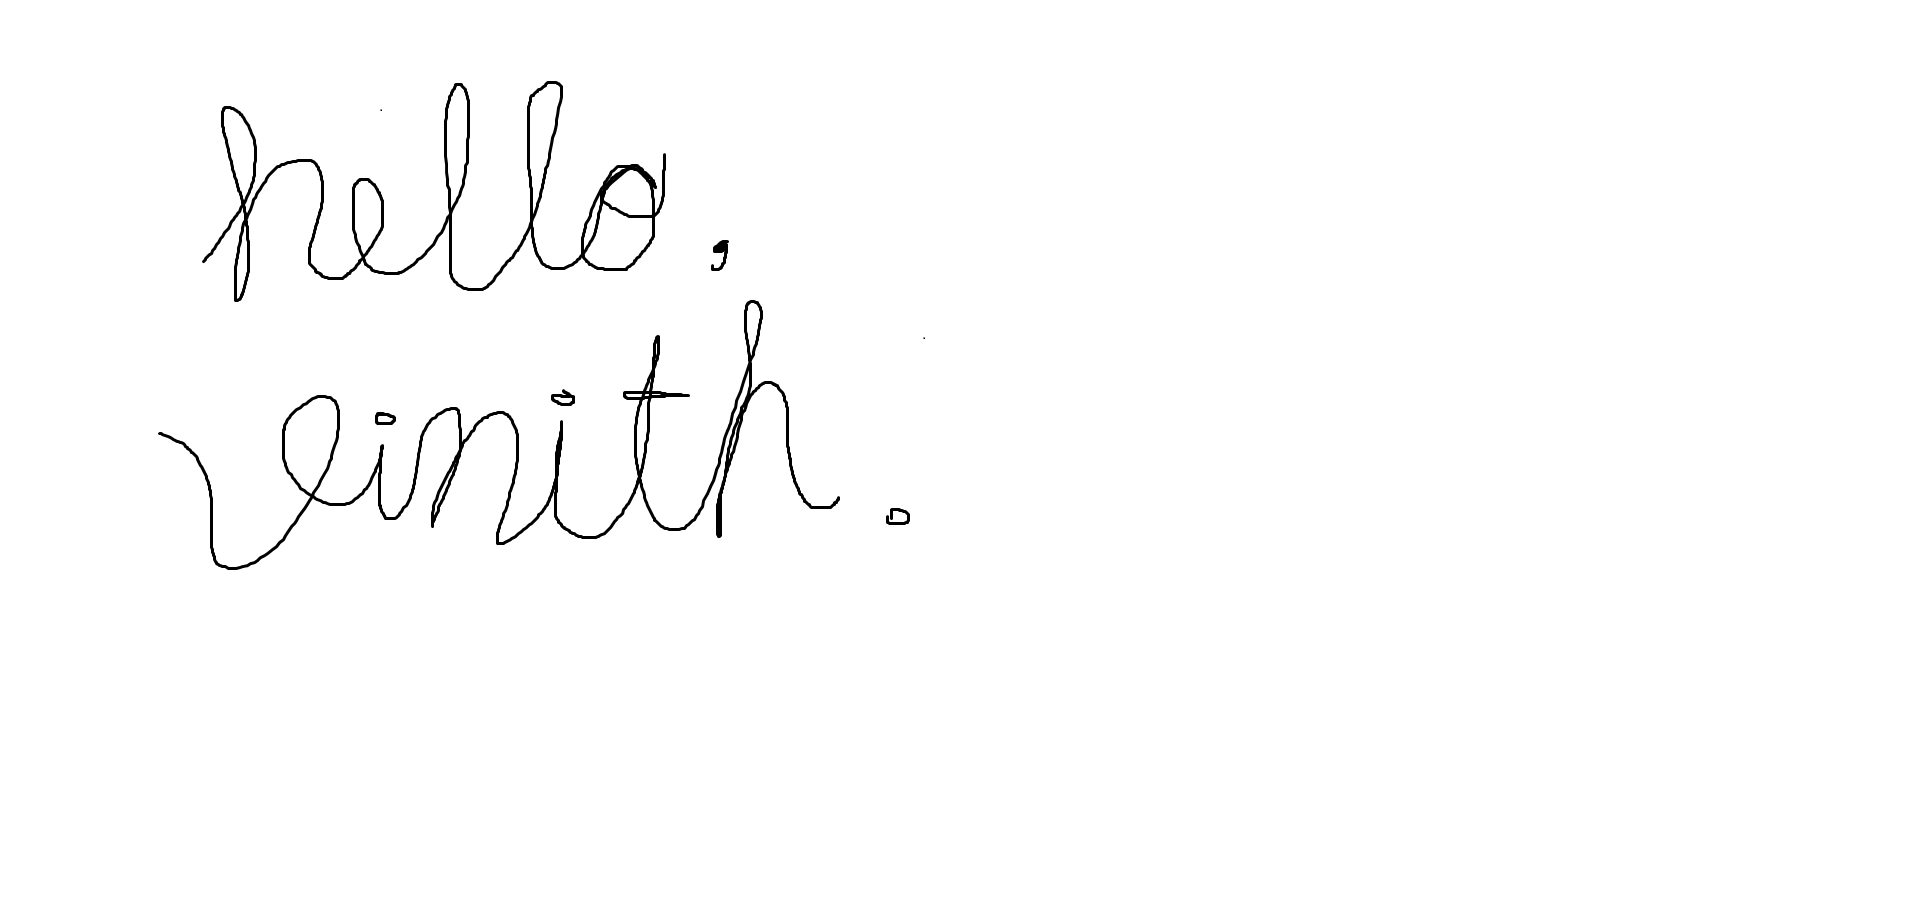 hello,
vinith.